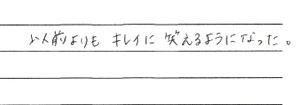 以前よりも キレイに 笑えるようになった。